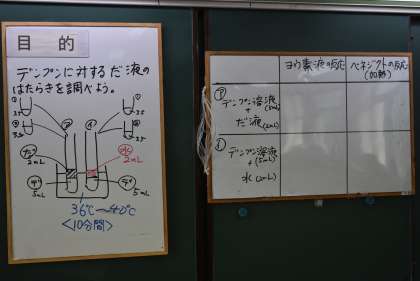 目的
デンプンに対するだ液の
はたらきを調べよう。
ア
イ
だ
2mL
水
2mL
デ
5mL
デ
5mL
36℃〜40℃
<10分間>
ヨウ素液の反応
ベネジクトの反応
(加熱)
ア
デンプン溶液
(5mL)
+
だ液(2mL)
イ
デンプン溶液
+(5mL)
水(2mL)